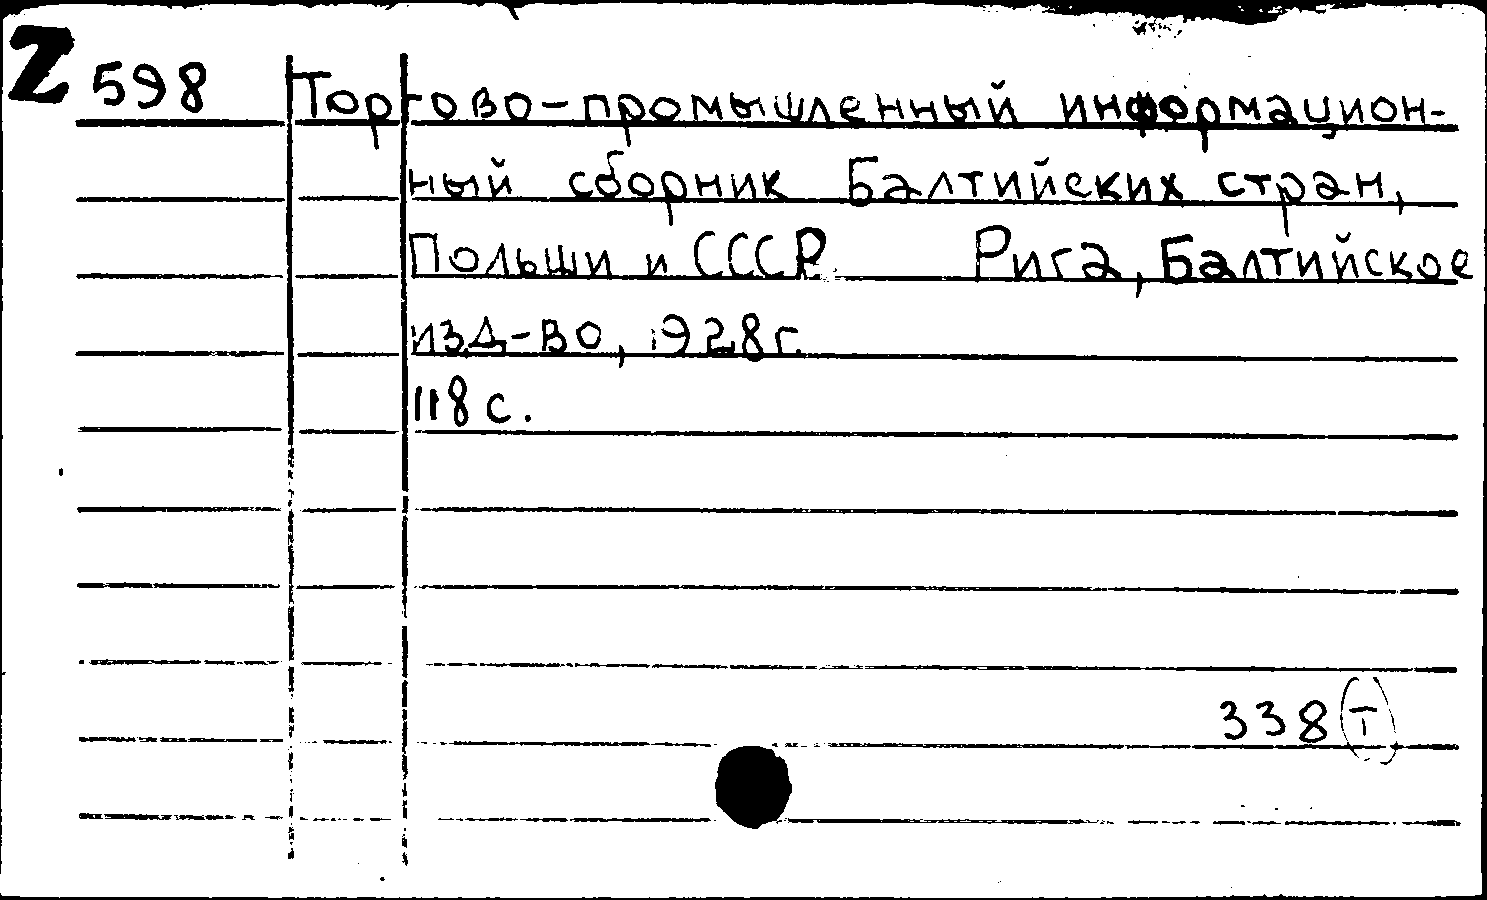 Z 598 Торгово-промышленный информацион-
ный сборник Балтийских стран,
Польши и СССР. Рига, Балтийское
изд-во, 1928 г.
118 с.
338(Т)